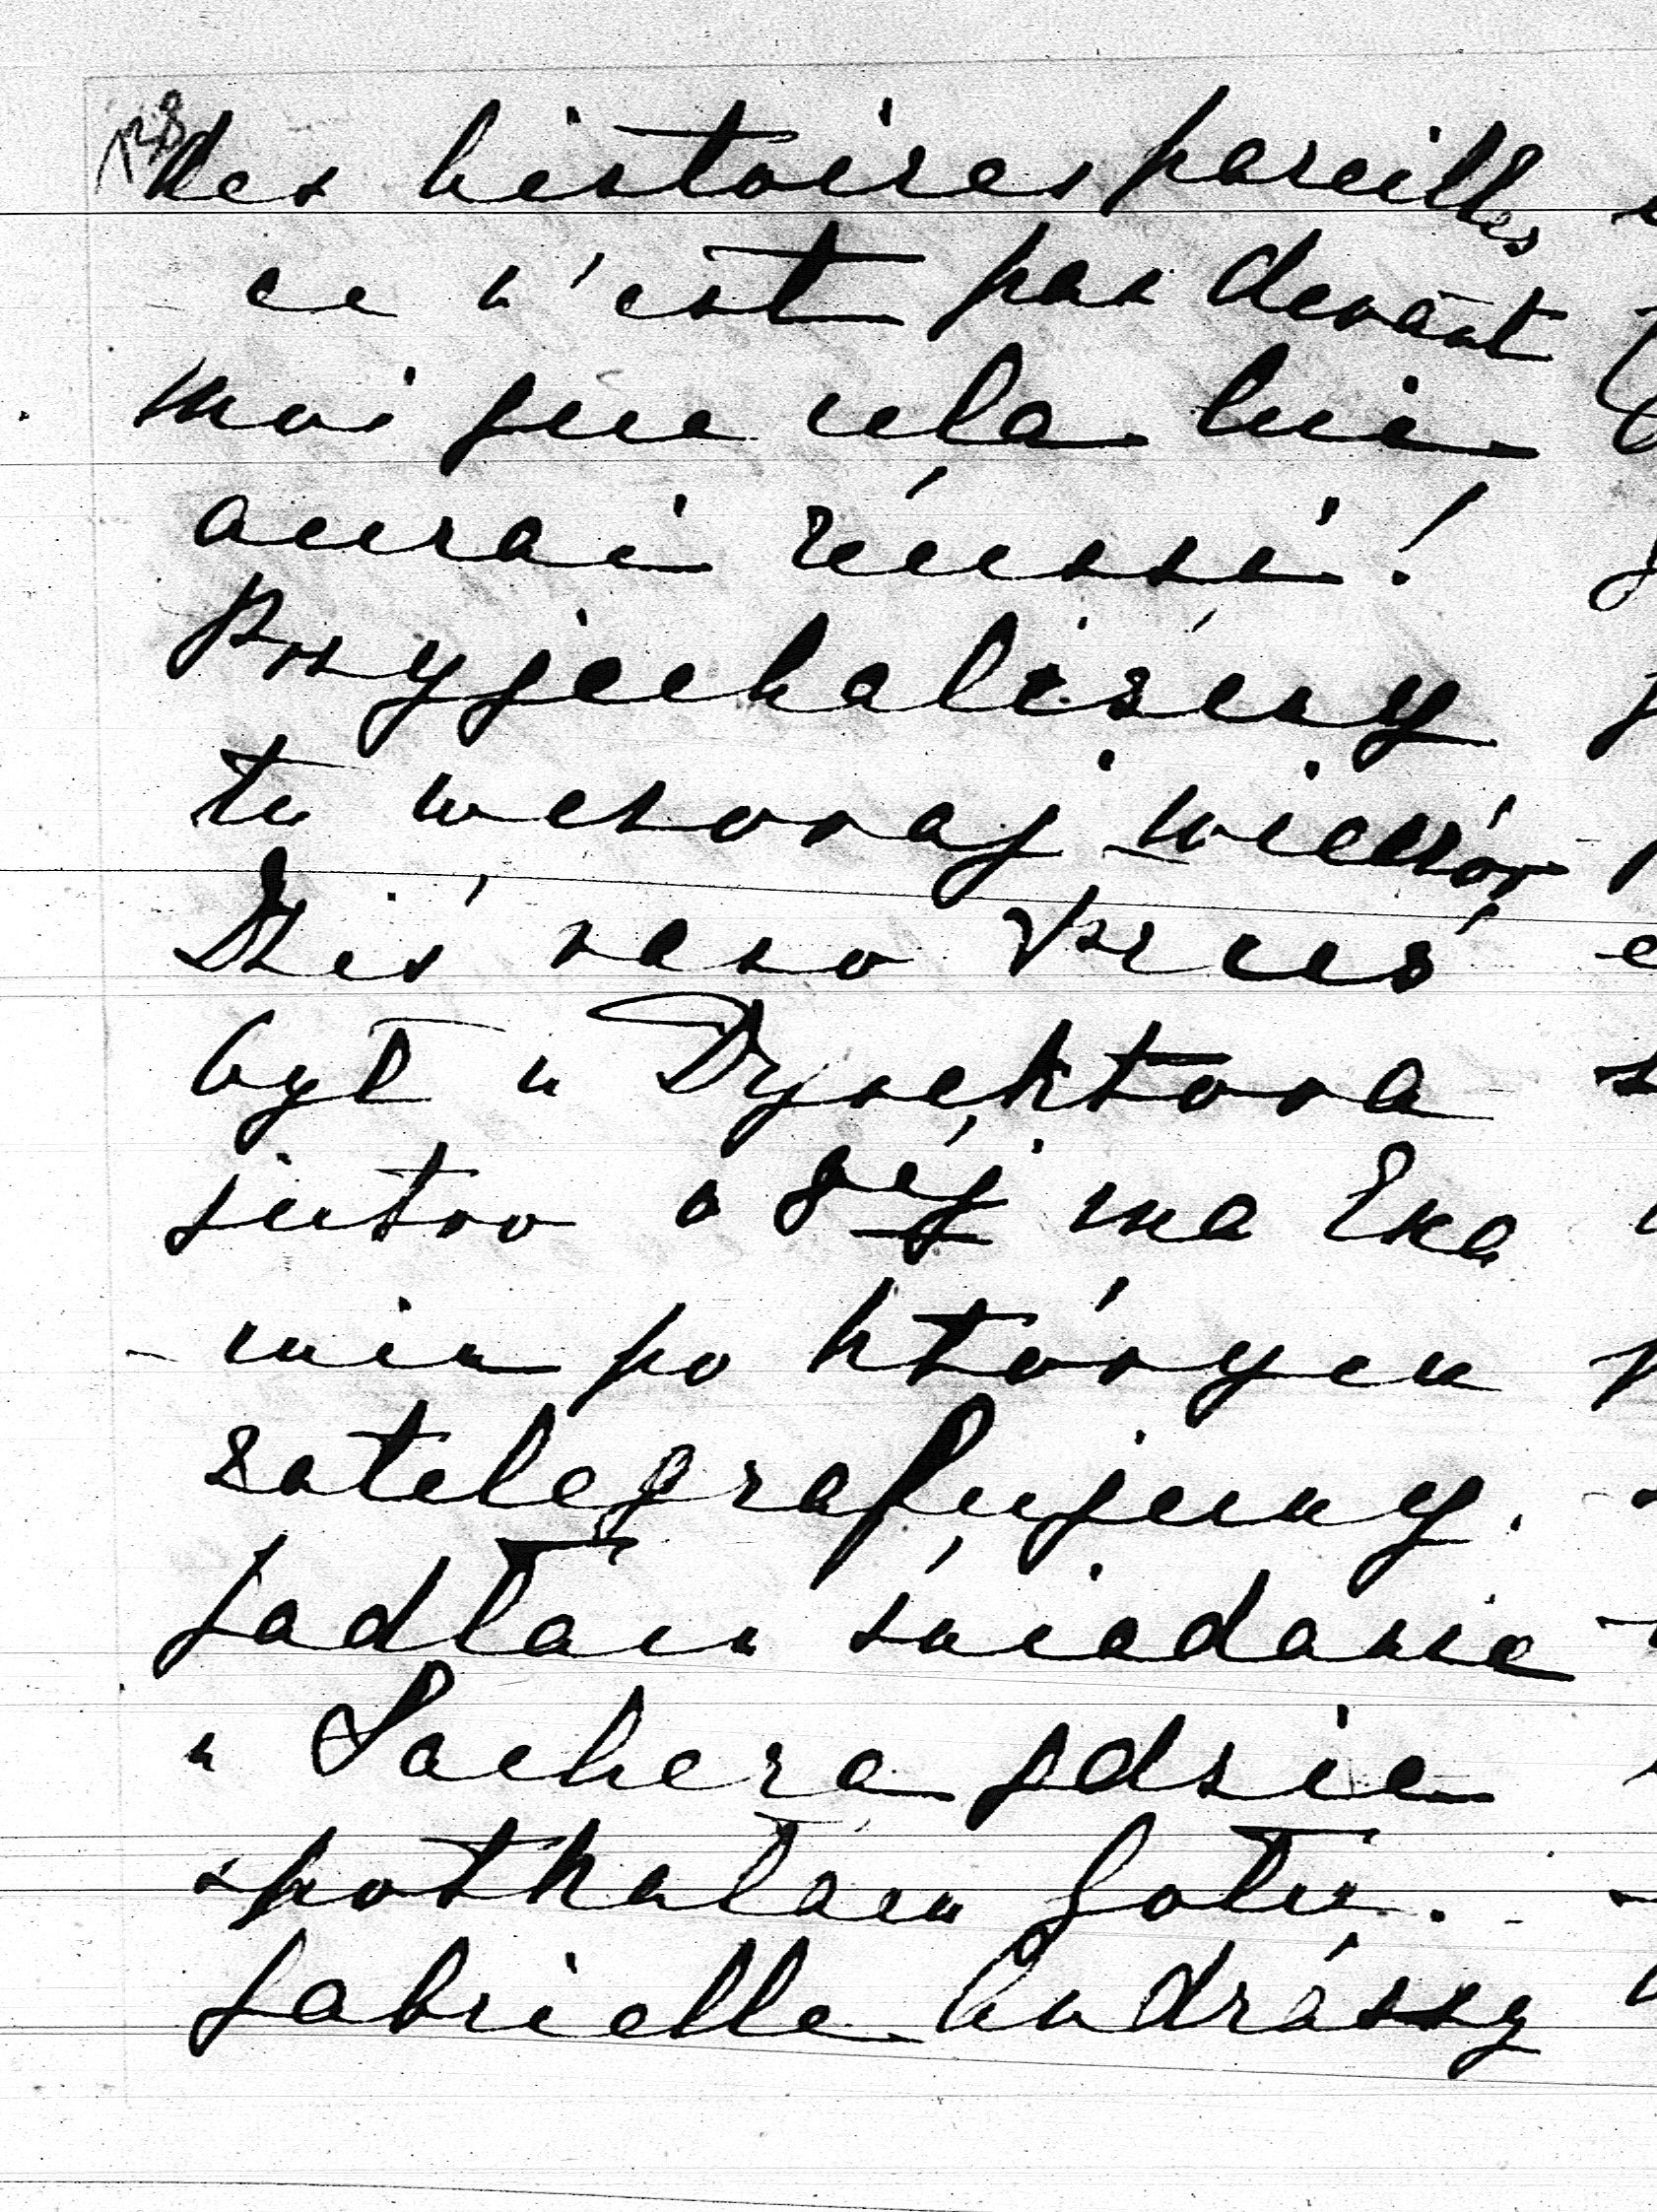 138
des histoires pareilles
ce n'est pas devant
moi que cela lui
aurai réussi!
Przyjechaliśmy
tu wczoraj wieczór
Dziś rano
był u Dyrektora
jutro o 8ej ma Exa
-min po którym
zatelegrafujemy.
Jadłam śniadanie
u Sachera gdzie
spotkałam
Gabrielle Andrássy